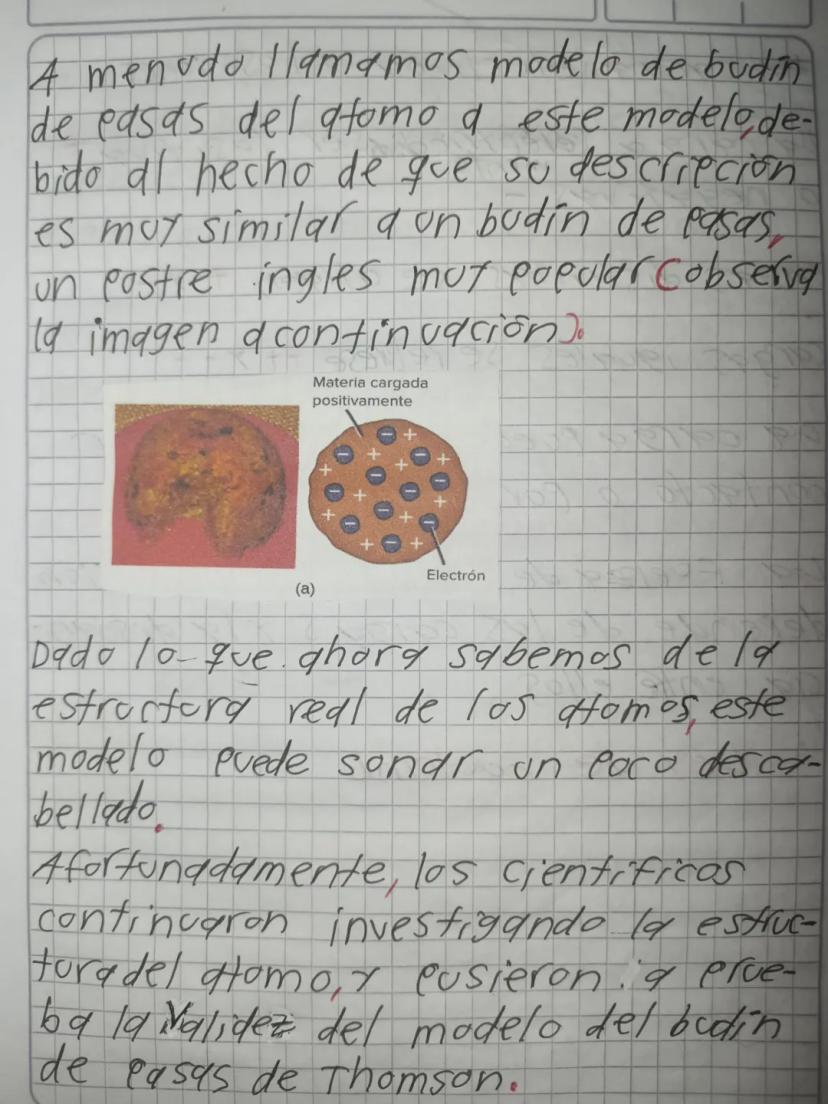 A menudo llamamos modelo de budín
de pasas del atomo a este modelo, de-
bido al hecho de que su descripción
es muy similar a un budín de pasas,
un postre ingles muy popular (observa
la imagen a continuación).
Materia cargada
positivamente
Electrón
(a)
Dado lo que ahora sabemos de la
estructura real de los atomos, este
modelo puede sonar un poco desca-
bellado.
Afortunadamente, los cientificos
continuaron investigando la estruc-
tura del atomo, y pusieron a prue-
ba la validez del modelo del budín
de pasas de Thomson.